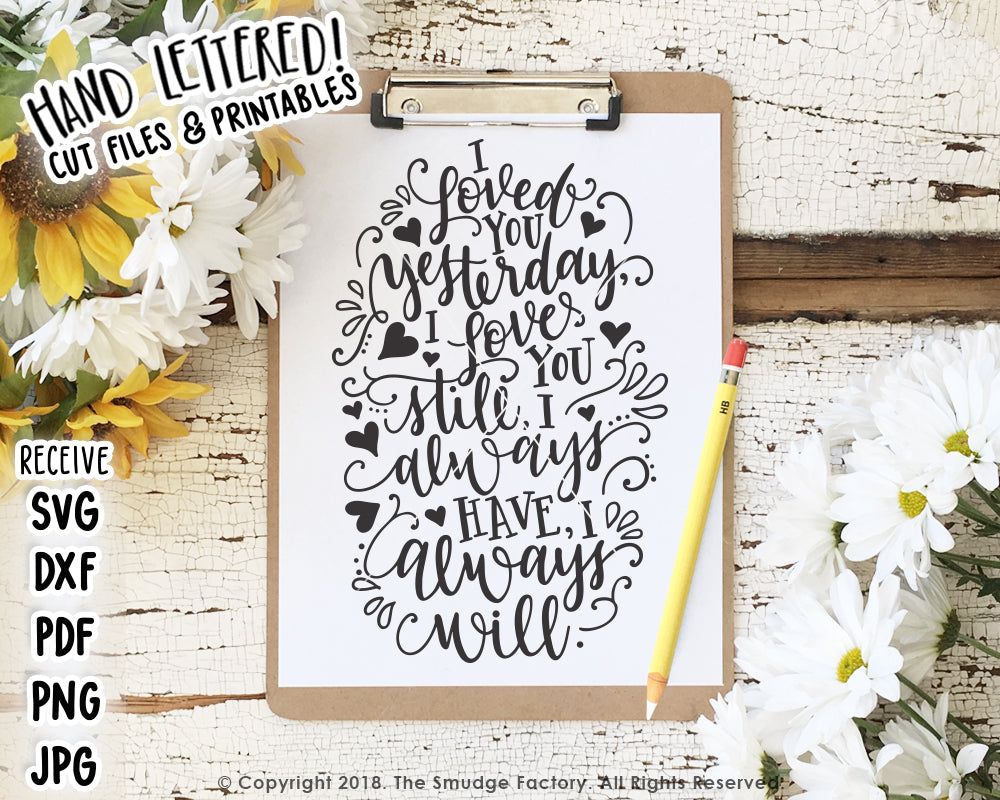 HAND LETTERED!
CUT FILES & PRINTABLES
I
loved
YOU
yesterday,
I love
YOU
still, I
always
HAVE, I
always
will.
HB
RECEIVE
SVG
DXF
PDF
PNG
JPG
© Copyright 2018. The Smudge Factory. All Rights Reserved.